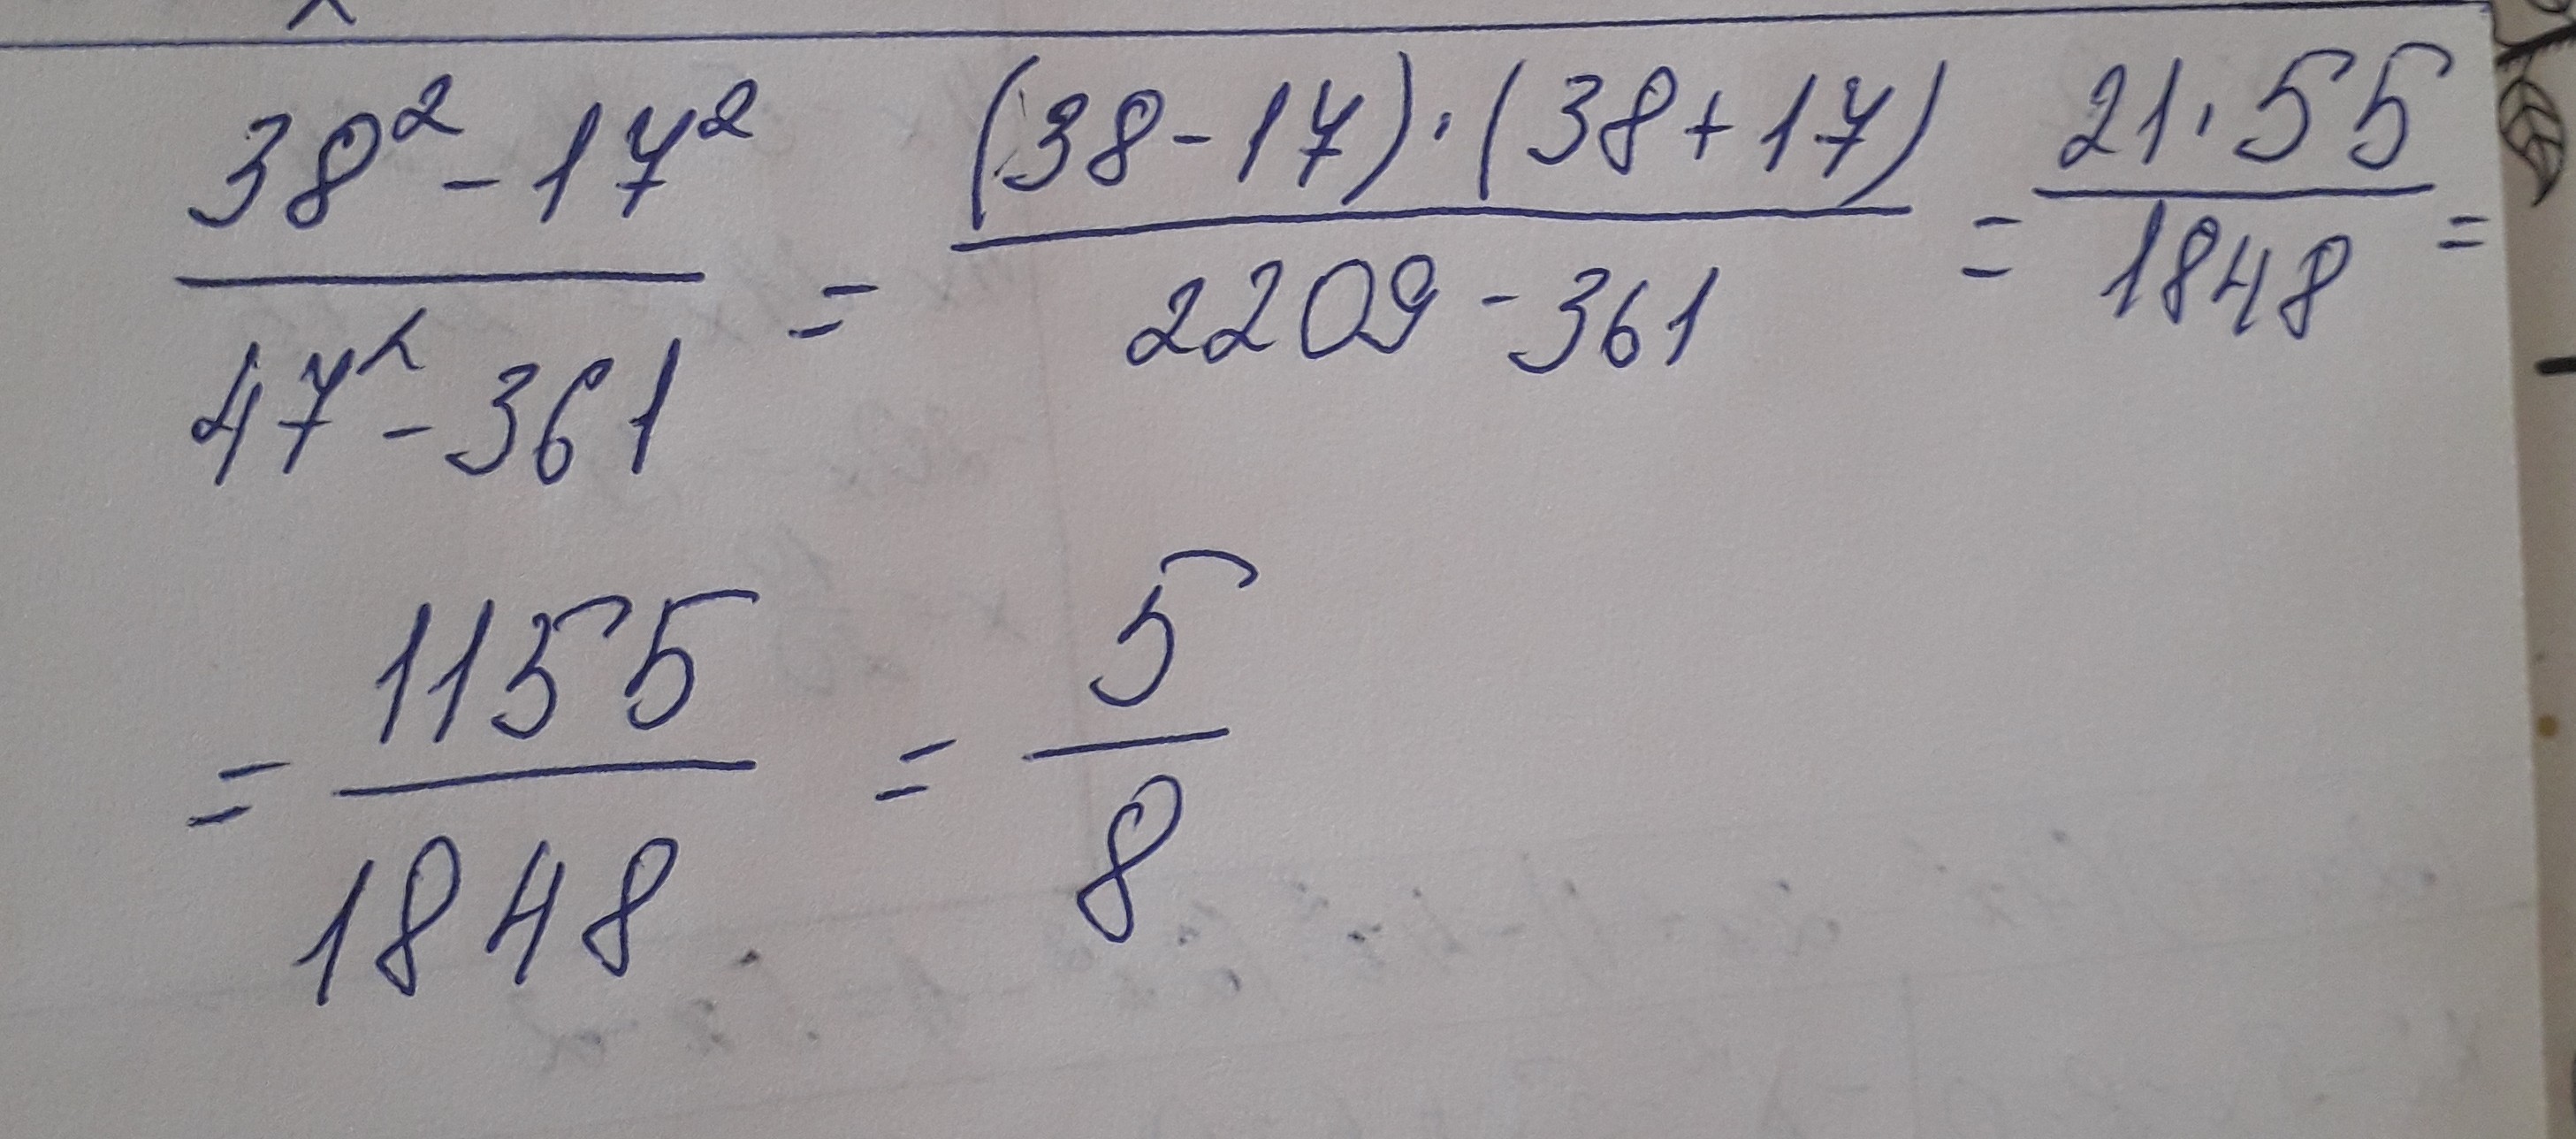 (38² - 17²) / (47² - 361) = ((38 - 17) · (38 + 17)) / (2209 - 361) = (21 · 55) / 1848 =
= 1155 / 1848 = 5 / 8